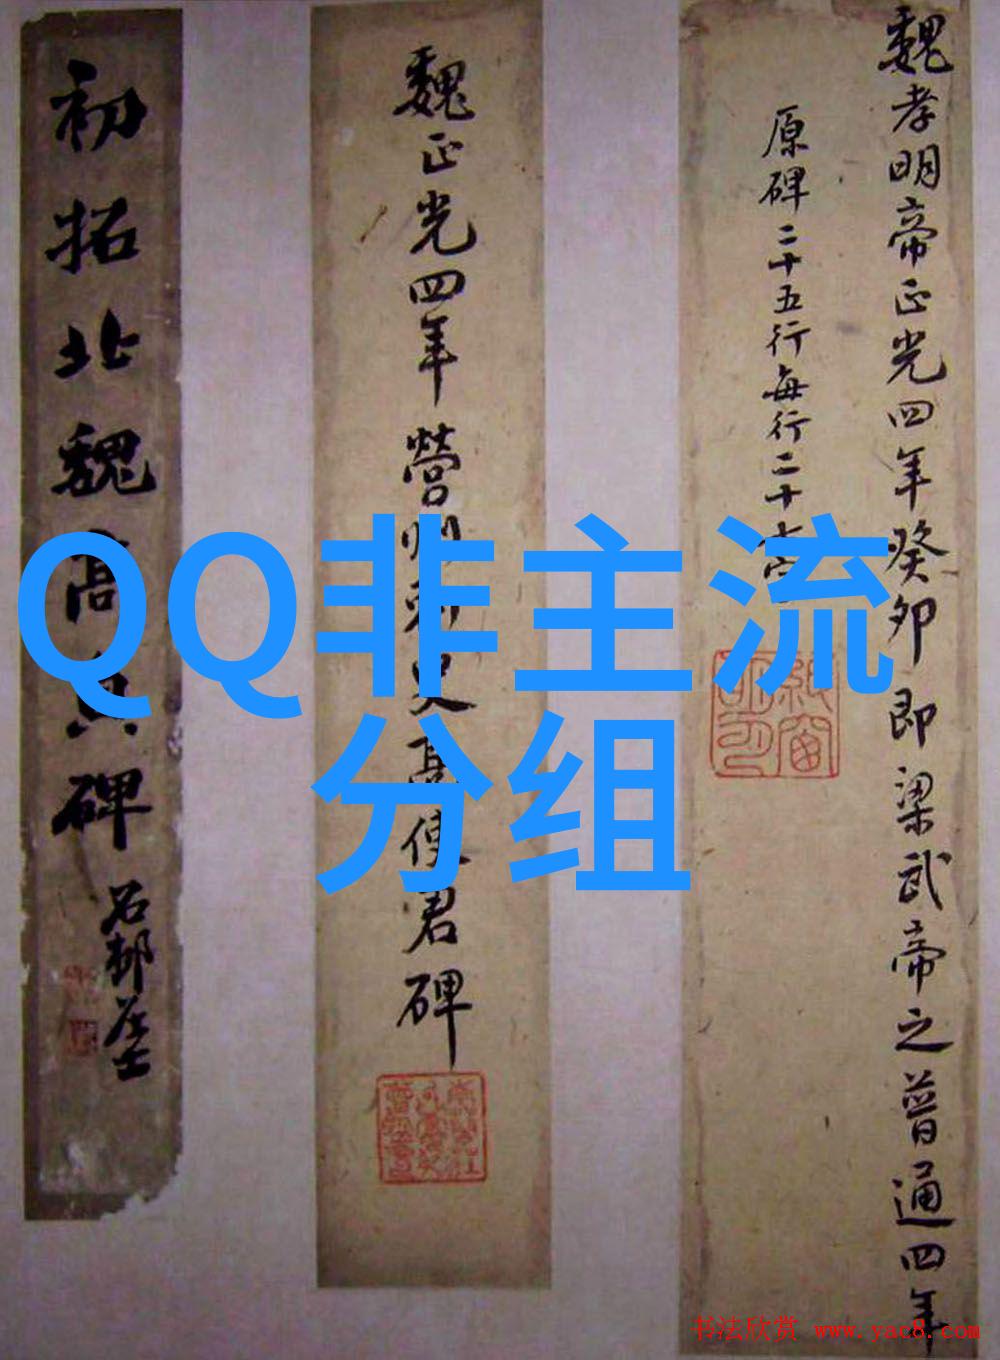 魏孝明帝正光四年癸卯即梁武帝之普通四年
原碑二十五行每行二十
魏正光四年營州刺史高使君碑
初拓北魏高貞碑
石邨居士
QQ非主流
分组
书法欣赏 www.yac8.com